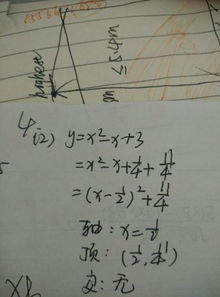 highest
≤5.4m
m
4(2) y=x²-x+3
=x²-x+1/4+11/4
=(x-1/2)²+11/4
轴: x=1/2
顶: (1/2, 11/4)
交: 无